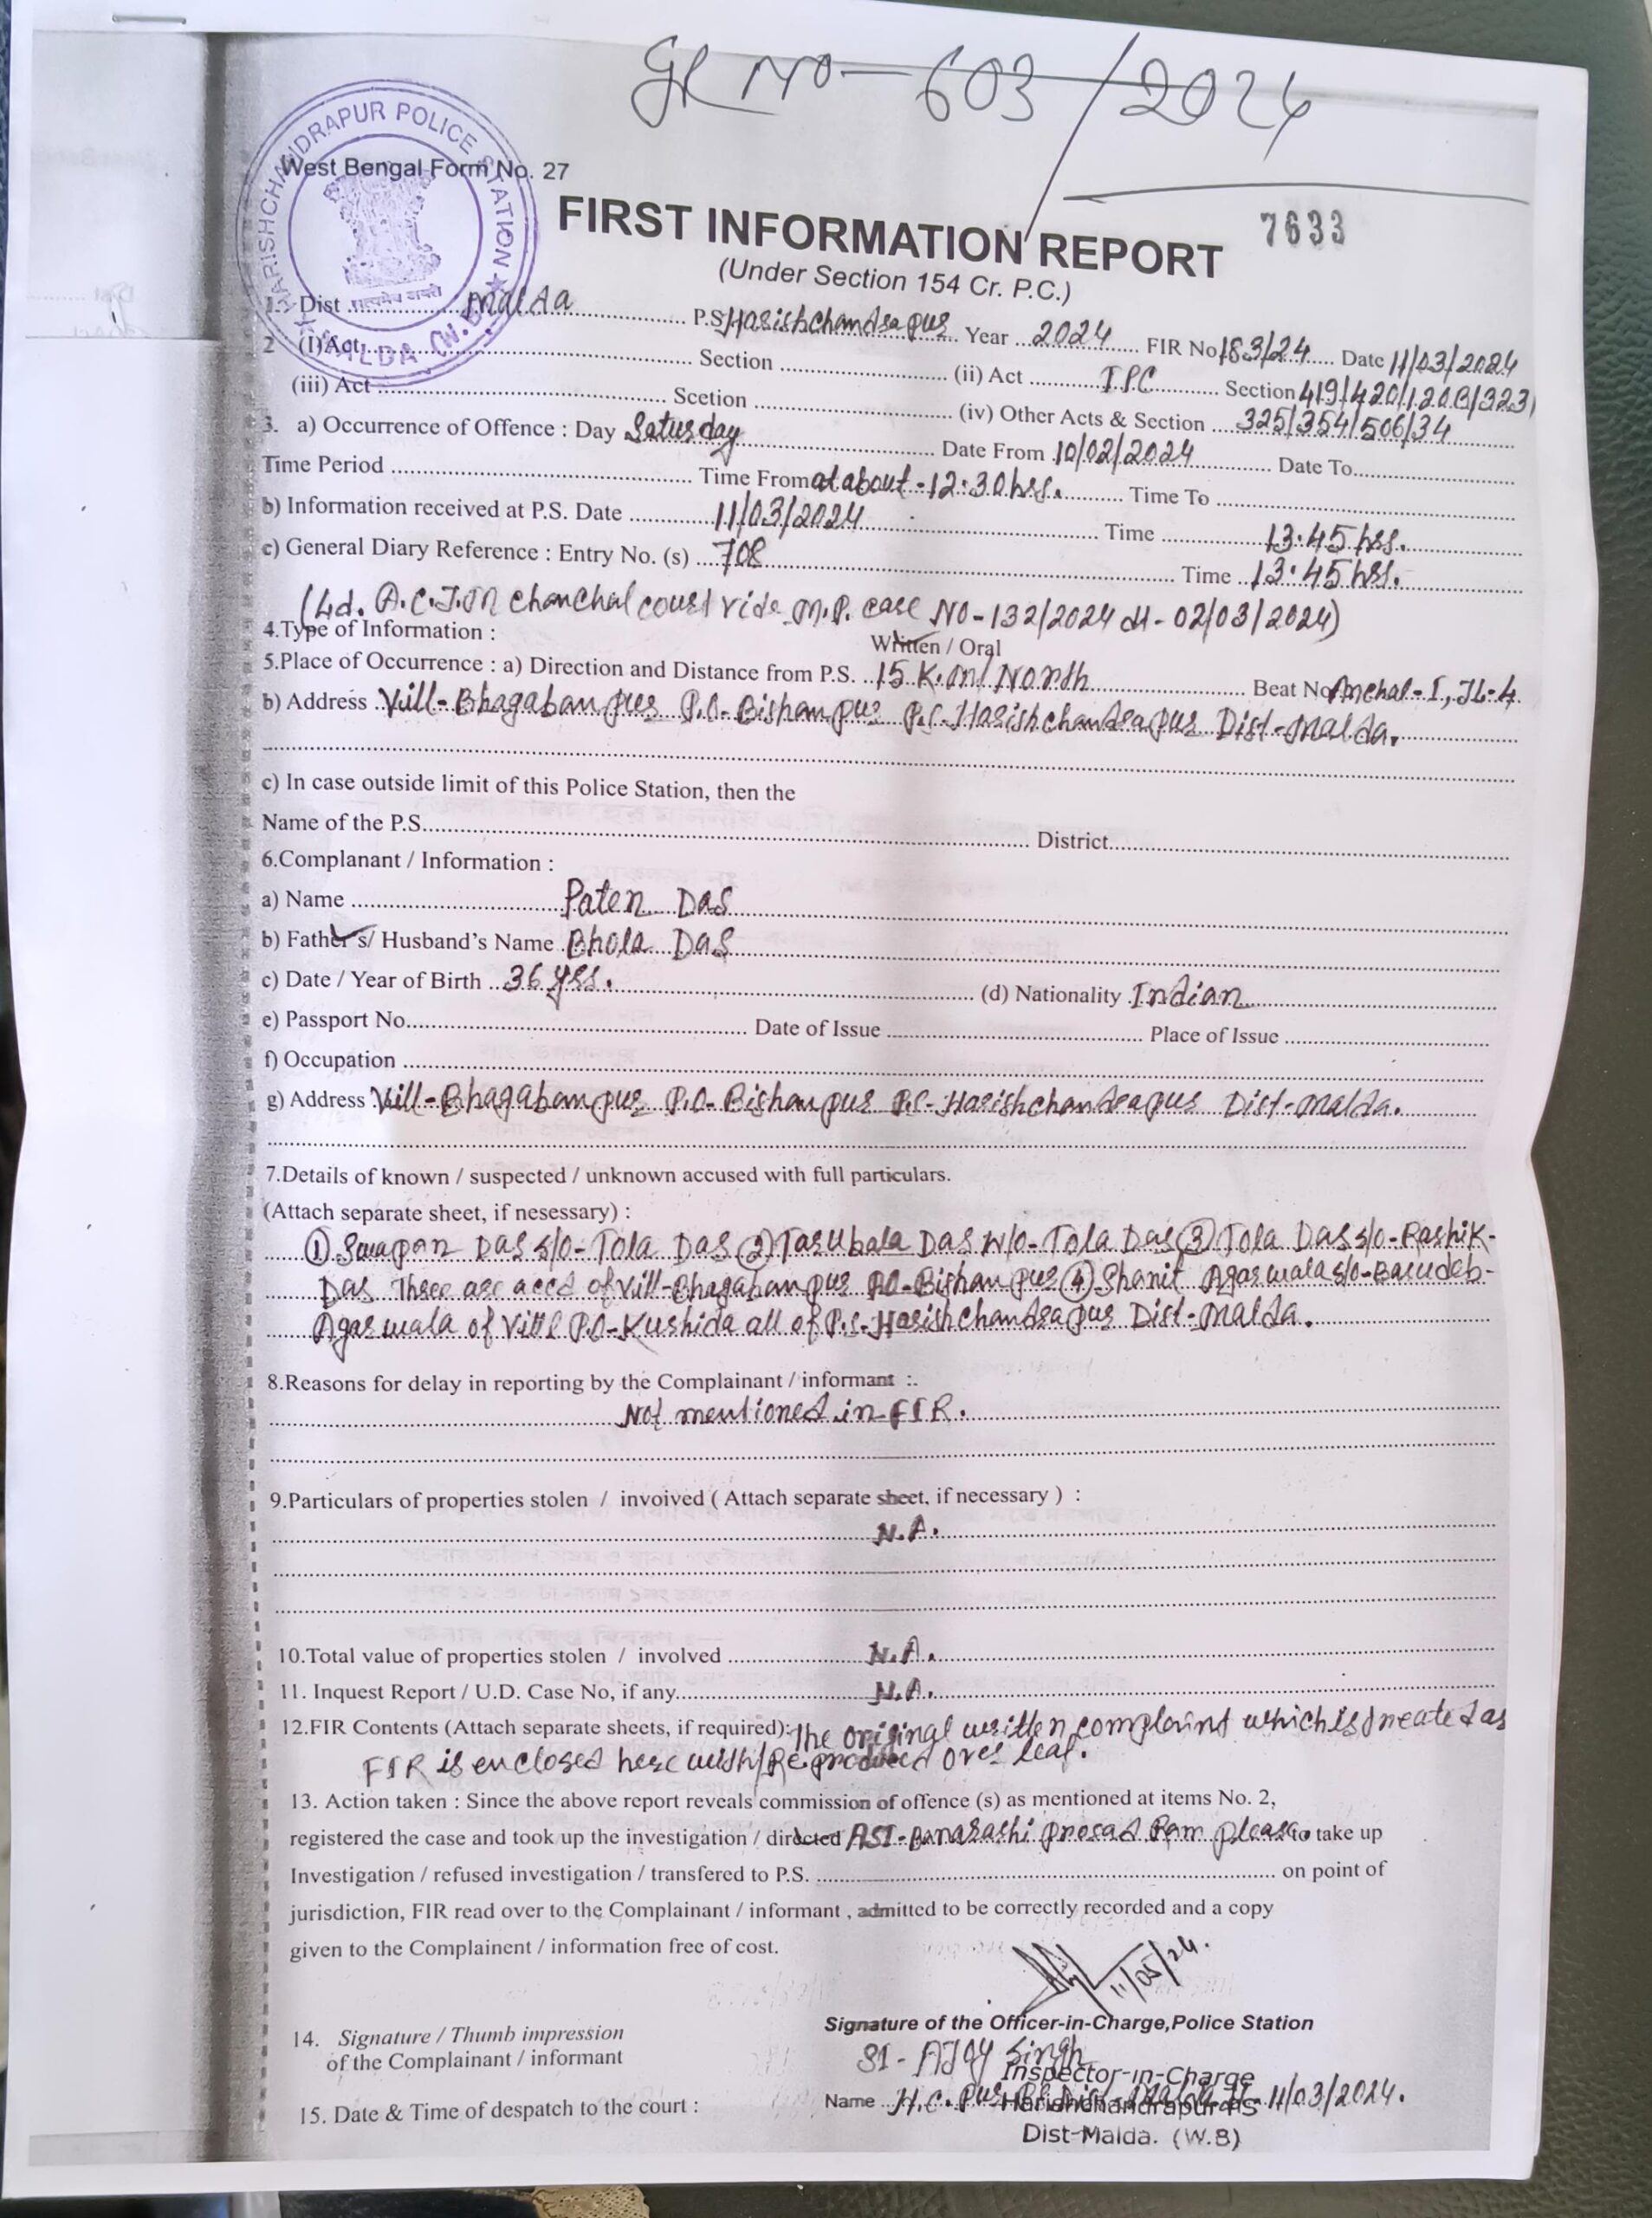 GR NO-603/2024
HARISHCHANDRAPUR POLICE STATION
MALDA (W.B)
सत्यमेव जयते
West Bengal Form No. 27
FIRST INFORMATION REPORT 7633
(Under Section 154 Cr. P.C.)
1. Dist Malda P.S Harishchandrapur Year 2024 FIR No 183/24 Date 11/03/2024
2 (I) Act Section (ii) Act I.P.C Section 419/420/120B/323/
(iii) Act Scetion (iv) Other Acts & Section 325/354/506/34
3. a) Occurrence of Offence : Day Saturday Date From 10/02/2024 Date To
Time Period Time From at about - 12:30 hrs. Time To
b) Information received at P.S. Date 11/03/2024 Time 13:45 hrs.
c) General Diary Reference : Entry No. (s) 708 Time 13:45 hrs.
(Ld. A.C.J.M Chanchal court vide M.P. case NO-132/2024 dt- 02/03/2024)
4.Type of Information : Written / Oral
5.Place of Occurrence : a) Direction and Distance from P.S. 15 K.m/ North Beat No Anchal-I, JL-4
b) Address Vill-Bhagabanpur P.O-Bishanpur P.S-Harishchandrapur Dist-Malda.
c) In case outside limit of this Police Station, then the
Name of the P.S. District
6.Complanant / Information :
a) Name Paten Das
b) Father's/ Husband's Name Bhola Das
c) Date / Year of Birth 36 yrs. (d) Nationality Indian
e) Passport No. Date of Issue Place of Issue
f) Occupation
g) Address Vill-Bhagabanpur P.O-Bishanpur P.S-Harishchandrapur Dist-Malda.
7.Details of known / suspected / unknown accused with full particulars.
(Attach separate sheet, if nesessary) :
① Swapan Das S/O- Tola Das ② Tarubala Das W/O- Tola Das ③ Tola Das S/O-Rashik-
Das Three are accd of Vill-Bhagabanpur PO-Bishanpur ④ Shanit Agarwala S/O-Basudeb-
Agarwala of Vill & P.O-Kushida all of P.S-Harishchandrapur Dist-Malda.
8.Reasons for delay in reporting by the Complainant / informant :.
Not mentioned in FIR.
9.Particulars of properties stolen / invoived ( Attach separate sheet, if necessary ) :
N.A.
10.Total value of properties stolen / involved N.A.
11. Inquest Report / U.D. Case No, if any. N.A.
12.FIR Contents (Attach separate sheets, if required): The original written complaint which is treated as
FIR is enclosed here with/Re produced over leaf.
13. Action taken : Since the above report reveals commission of offence (s) as mentioned at items No. 2,
registered the case and took up the investigation / directed ASI- Banarashi Prosad Ram please to take up
Investigation / refused investigation / transfered to P.S. on point of
jurisdiction, FIR read over to the Complainant / informant , admitted to be correctly recorded and a copy
given to the Complainent / information free of cost.
11/03/24.
Signature of the Officer-in-Charge,Police Station
14. Signature / Thumb impression
of the Complainant / informant
SI- AJOY Singh
Inspector-in-Charge
Name H.C.Pur 11/03/2024.
Harishchandrapur PS
15. Date & Time of despatch to the court :
Dist-Malda. (W.B)